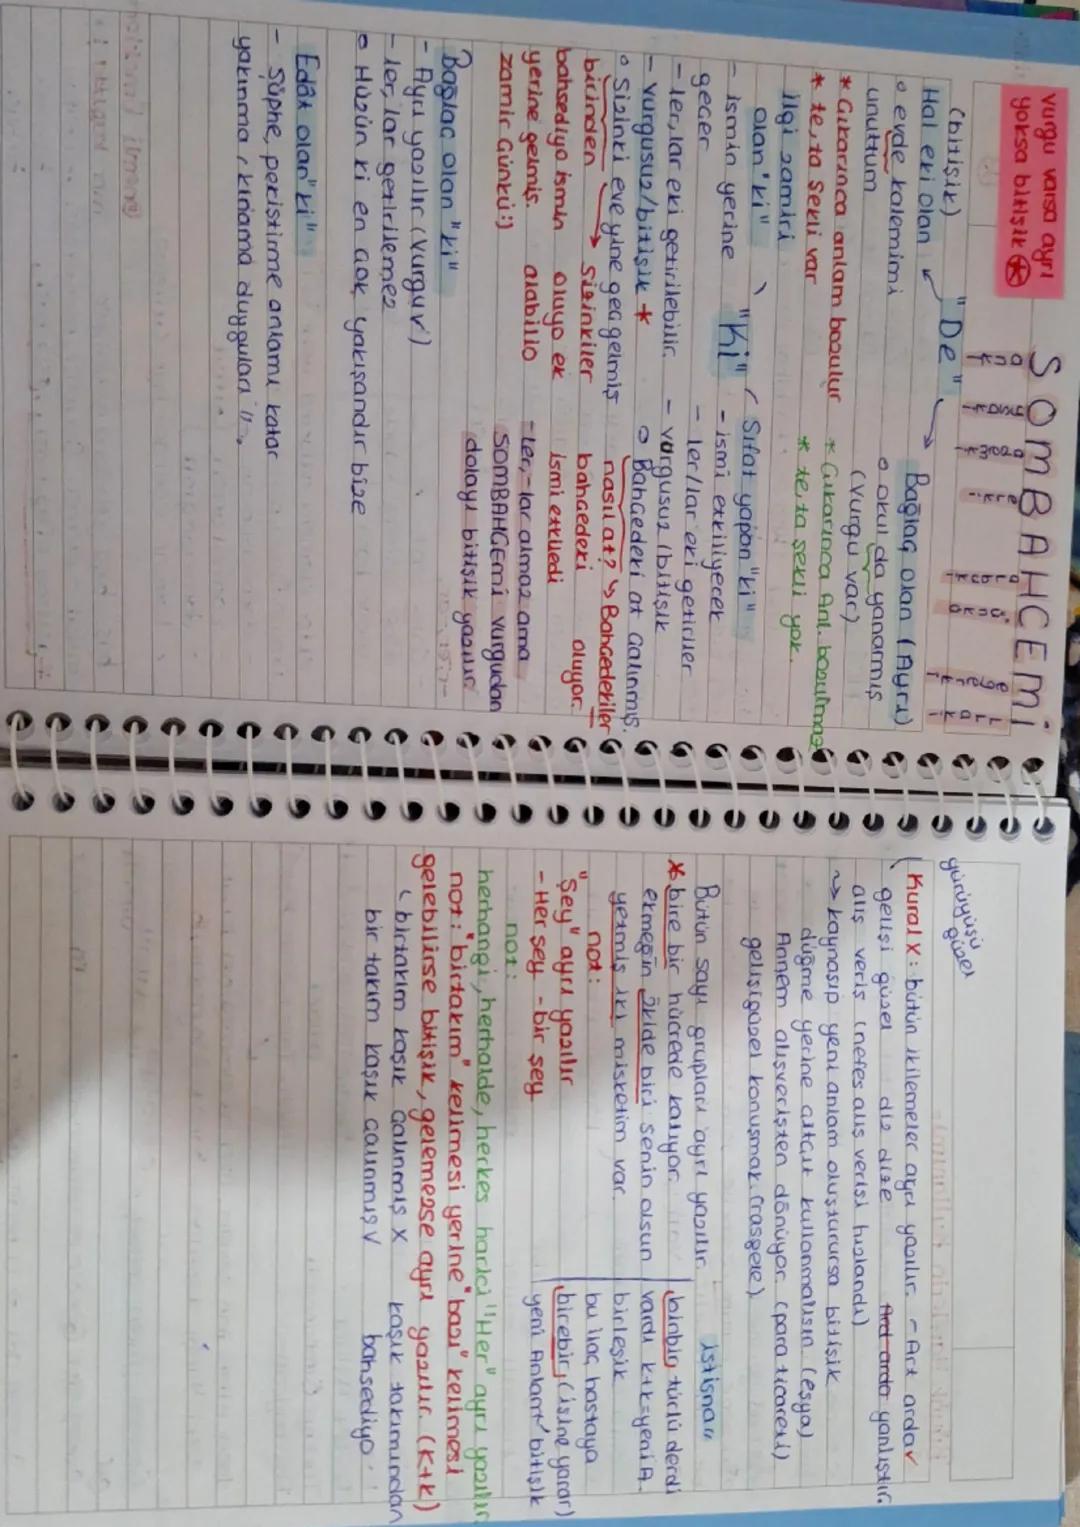 vurgu varsa ayrı
yoksa bitişik
SOMBAHÇEMİ
"De"
Hal eki olan
(bitişik)
o evde kalemimi
unuttum
* Çıkarınca anlam bozulur
* te, ta şekli var
Bağlaç olan (Ayrı)
o okul da yanarmış
(vurgu var)
* Çıkarınca Anl. bozulmaz
* te, ta şekli yok.
"Ki"
ilgi zamiri
olan "ki"
- ismin yerine
geçer
- ler, lar eki getirilebilir.
- vurgusuz/bitişik *
o Sizinki eve yine geç gelmiş
birinden → sizinkiler
bahsediyo ismin oluyo ek
yerine gelmiş. alabilio
zamir Çünkü:)
Sıfat yapan "ki"
- ismi etkiliyecek
- ler/lar eki getirilir
- vurgusuz (bitişik
o Bahçedeki at çalınmış.
nasıl at? ↳ Bahçedekiler
bahçedeki oluyor.
ismi etkiledi
- ler, -lar almaz ama
SOMBAHÇEMİ vurgudan
dolayı bitişik yazılır
Bağlaç olan "ki"
- Ayrı yazılır (vurgu✓)
- ler, lar getirilemez
o Hüzün ki en çok yakışandır bize
Edat olan "ki"
- Şüphe, pekiştirme anlamı katar
yakınma, kınama duyguları
gürüyüşü
güzel
Kural X: bütün ikilemeler ayrı yazılır. - Art arda✓
gelişi güzel diz dize Ard arda yanlıştır
alış veriş (nefes alış verişi hızlandı)
→ kaynaşıp yeni anlam oluşturursa bitişik
düğme yerine altçıt kullanmalısın (eşya)
Annem alışverişten dönüyor (para ticareti)
gelişigüzel konuşmak (rasgele)
Bütün sayı grupları ayrı yazılır.
* bire bir hücrede kalıyor.
ekmeğin ikide biri senin olsun
yetmiş iki misketim var.
istisna
binbir türlü derdi
vardı k+k=yeni A.
birleşik
bu ilaç hastaya
birebir, (işine yarar)
yeni Anlam✓ bitişik
not:
"Şey" ayrı yazılır
- Her şey - bir şey
not:
herhangi, herhalde, herkes harici "Her" ayrı yazılır
not: "birtakım" kelimesi yerine "bazı" kelimesi
gelebilirse bitişik, gelemezse ayrı yazılır. (K+k)
↳ birtakım kaşık çalınmış X kaşık takımından
bir takım kaşık çalınmış V bahsediyo